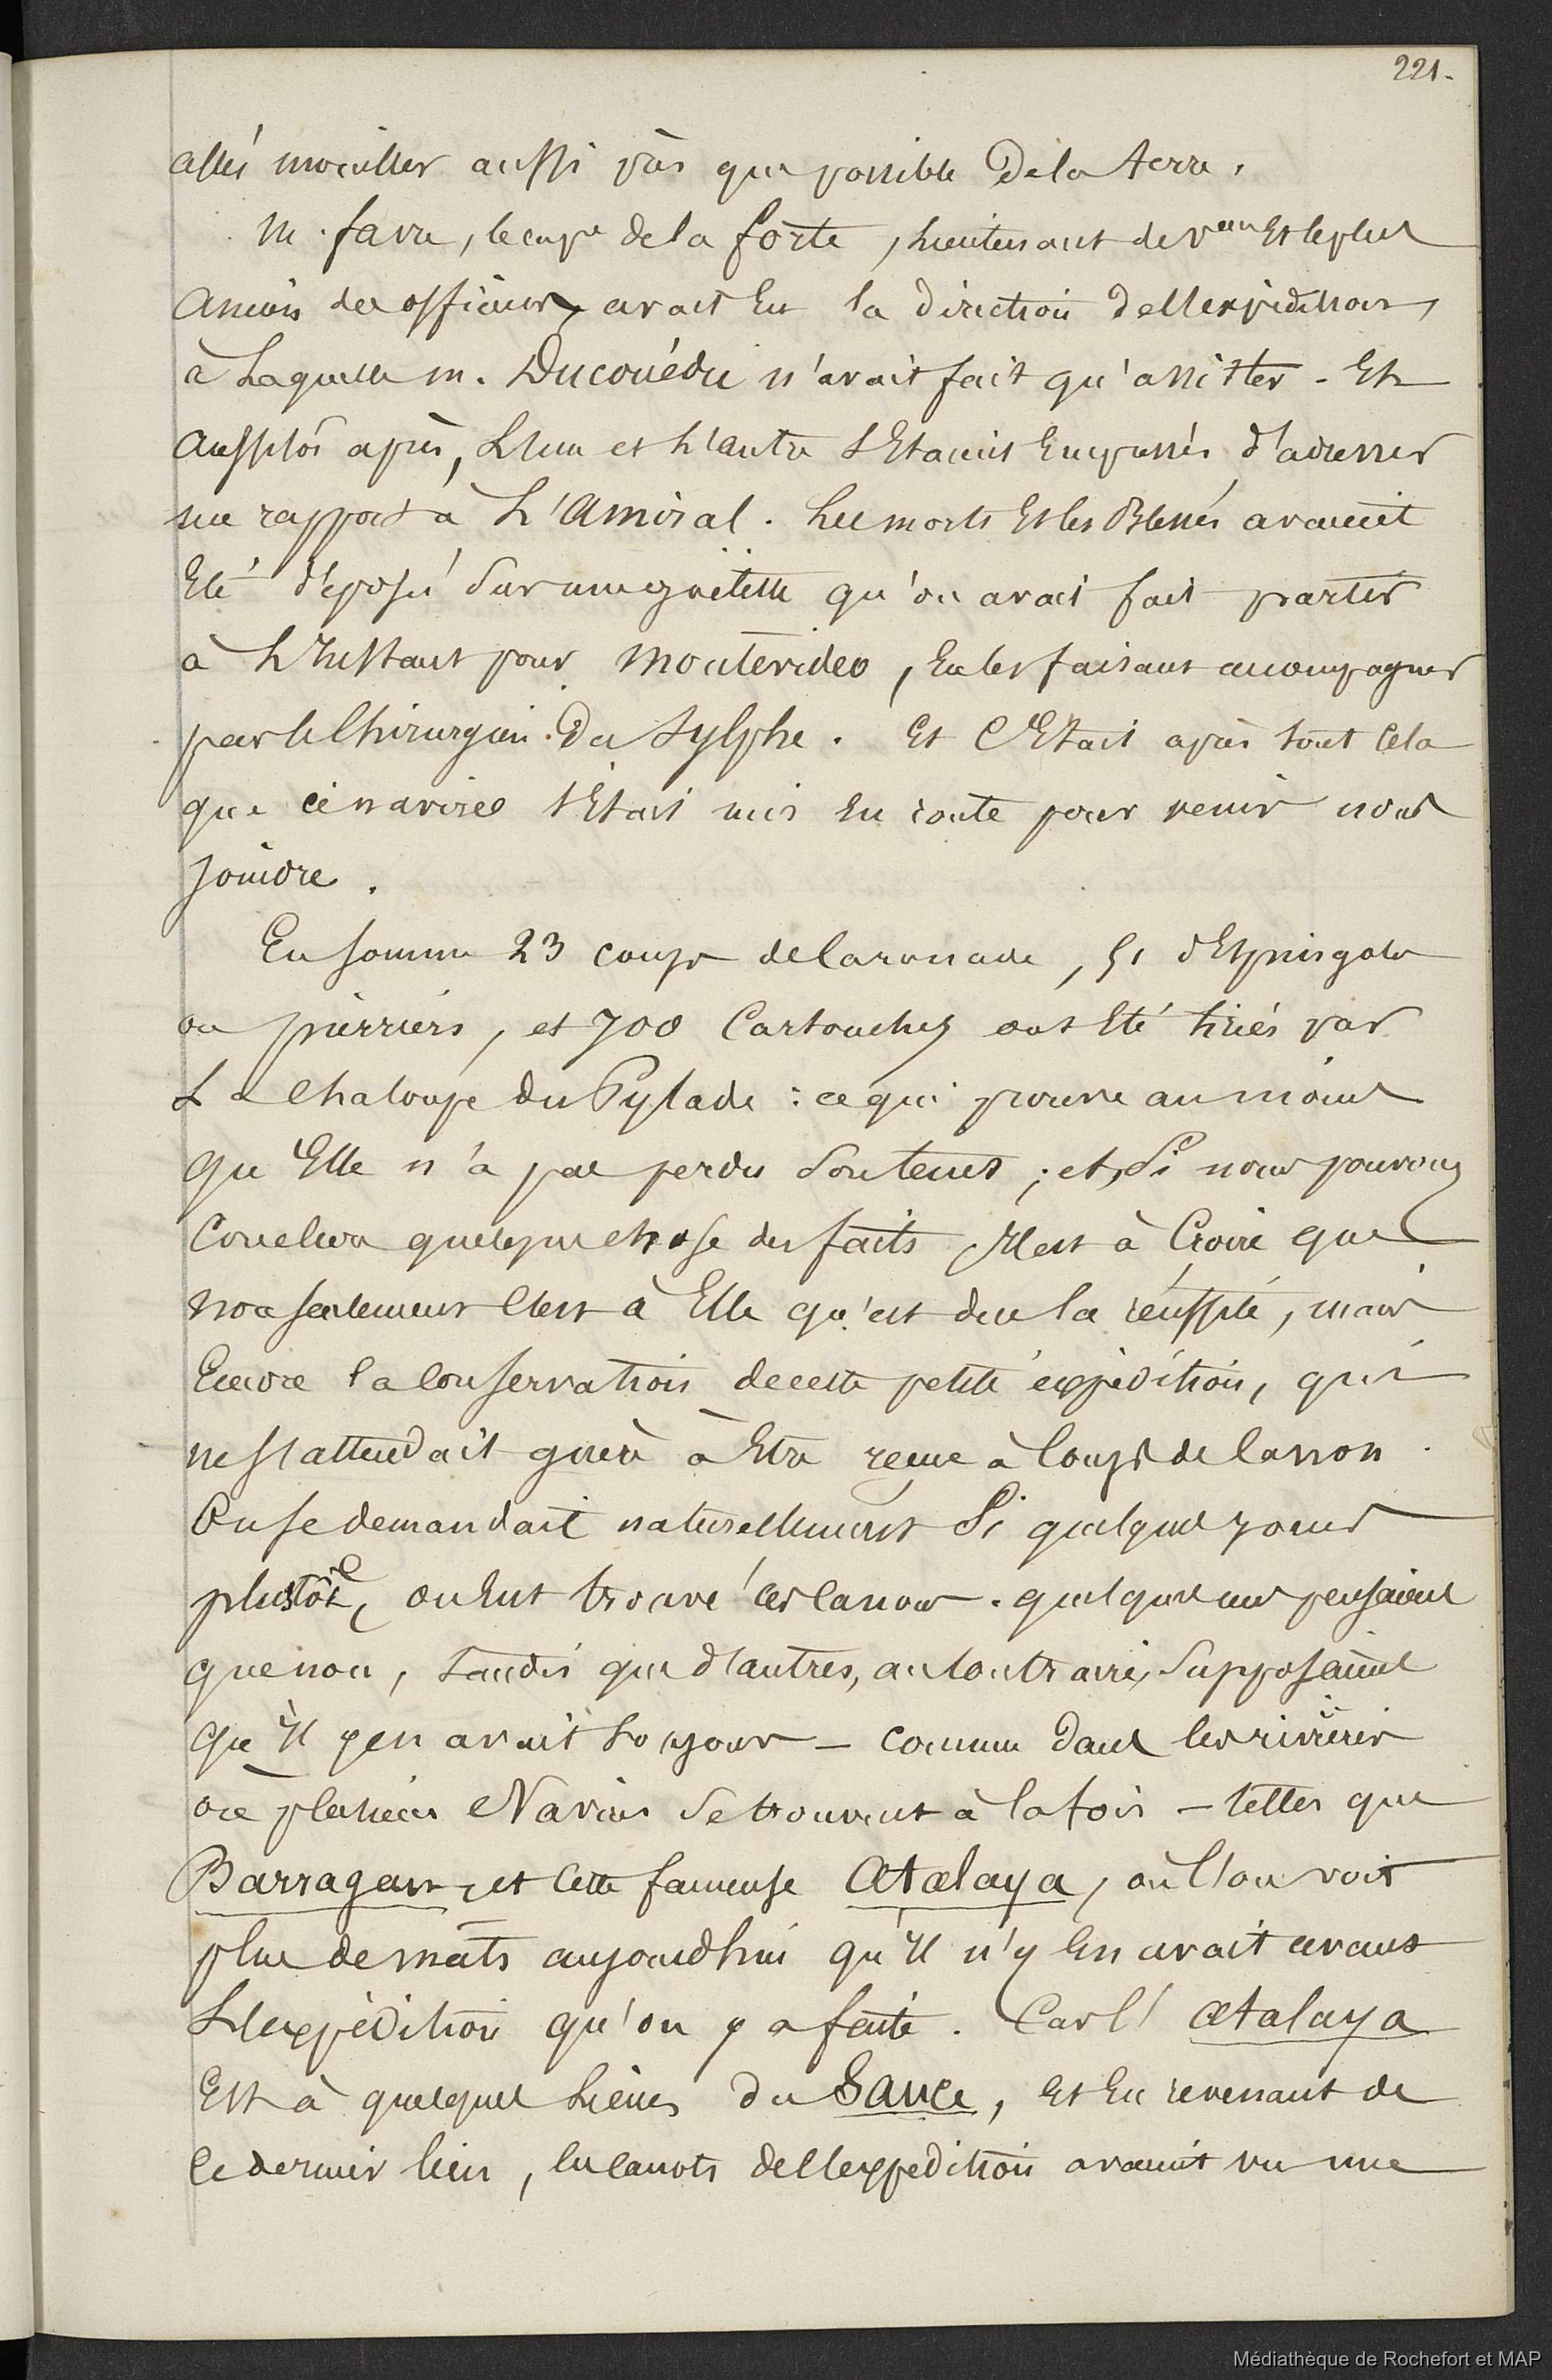 221.
allés mouiller aussi près que possible de la terre.
M. favre, de la forte, lieutenant de veau Et le plus
Ancien des officiers, avait Eu la direction de l'Expédition,
à Laquelle m. Ducouëdic n'avait fait qu'assister. Et
Aussitôt après, L'un et L'autre s'Etaient Empressés d'adresser
un rapport à L'Amiral. Les morts Et les Blessés avaient
Eté déposés sur une goëlette qu'on avait fait partir
à L'Instant pour Montevideo, En les faisant accompagner
par le Chirurgien du Sylphe. Et C'Etait après tout Cela
que ce navire s'Etait mis En route pour venir nous
joindre.
En somme 23 coups de Caronade, 51 d'Espingole
ou pierriers, et 700 Cartouches ont Eté tirés par
La Chaloupe du Pylade : ce qui prouve au moins
qu'Elle n'a pas perdu son tems ; et, Si nous pouvons
Conclure quelque chose des faits Il est à Croire que
non seulement C'est à Elle qu'est due la réussite, mais
Encore la Conservation de cette petite expédition, qui
ne s'attendait guère à Etre reçue à Coups de Canon.
On se demandait naturellement Si quelques jours
plustôt, on Eut trouvé ces Canons. quelques uns pensaient
que non, tandis que d'autres, au Contraire, Supposaient
qu'Il y en avait toujours — comme dans les rivières
où plusieurs Navires se trouvent à la fois — telles que
Barragan, et Cette fameuse Atalaya, où l'on voit
plus de mâts aujourdhui qu'Il n'y En avait avant
L'expédition qu'on y a faite. Car l'Atalaya
Est à quelques Lieues du Sauce, Et En revenant de
Ce dernier lieu, les Canots de l'expedition avaient vu une
Médiathèque de Rochefort et MAP